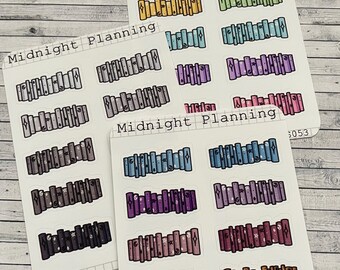 Midnight Planning
Midnight Planning
S053